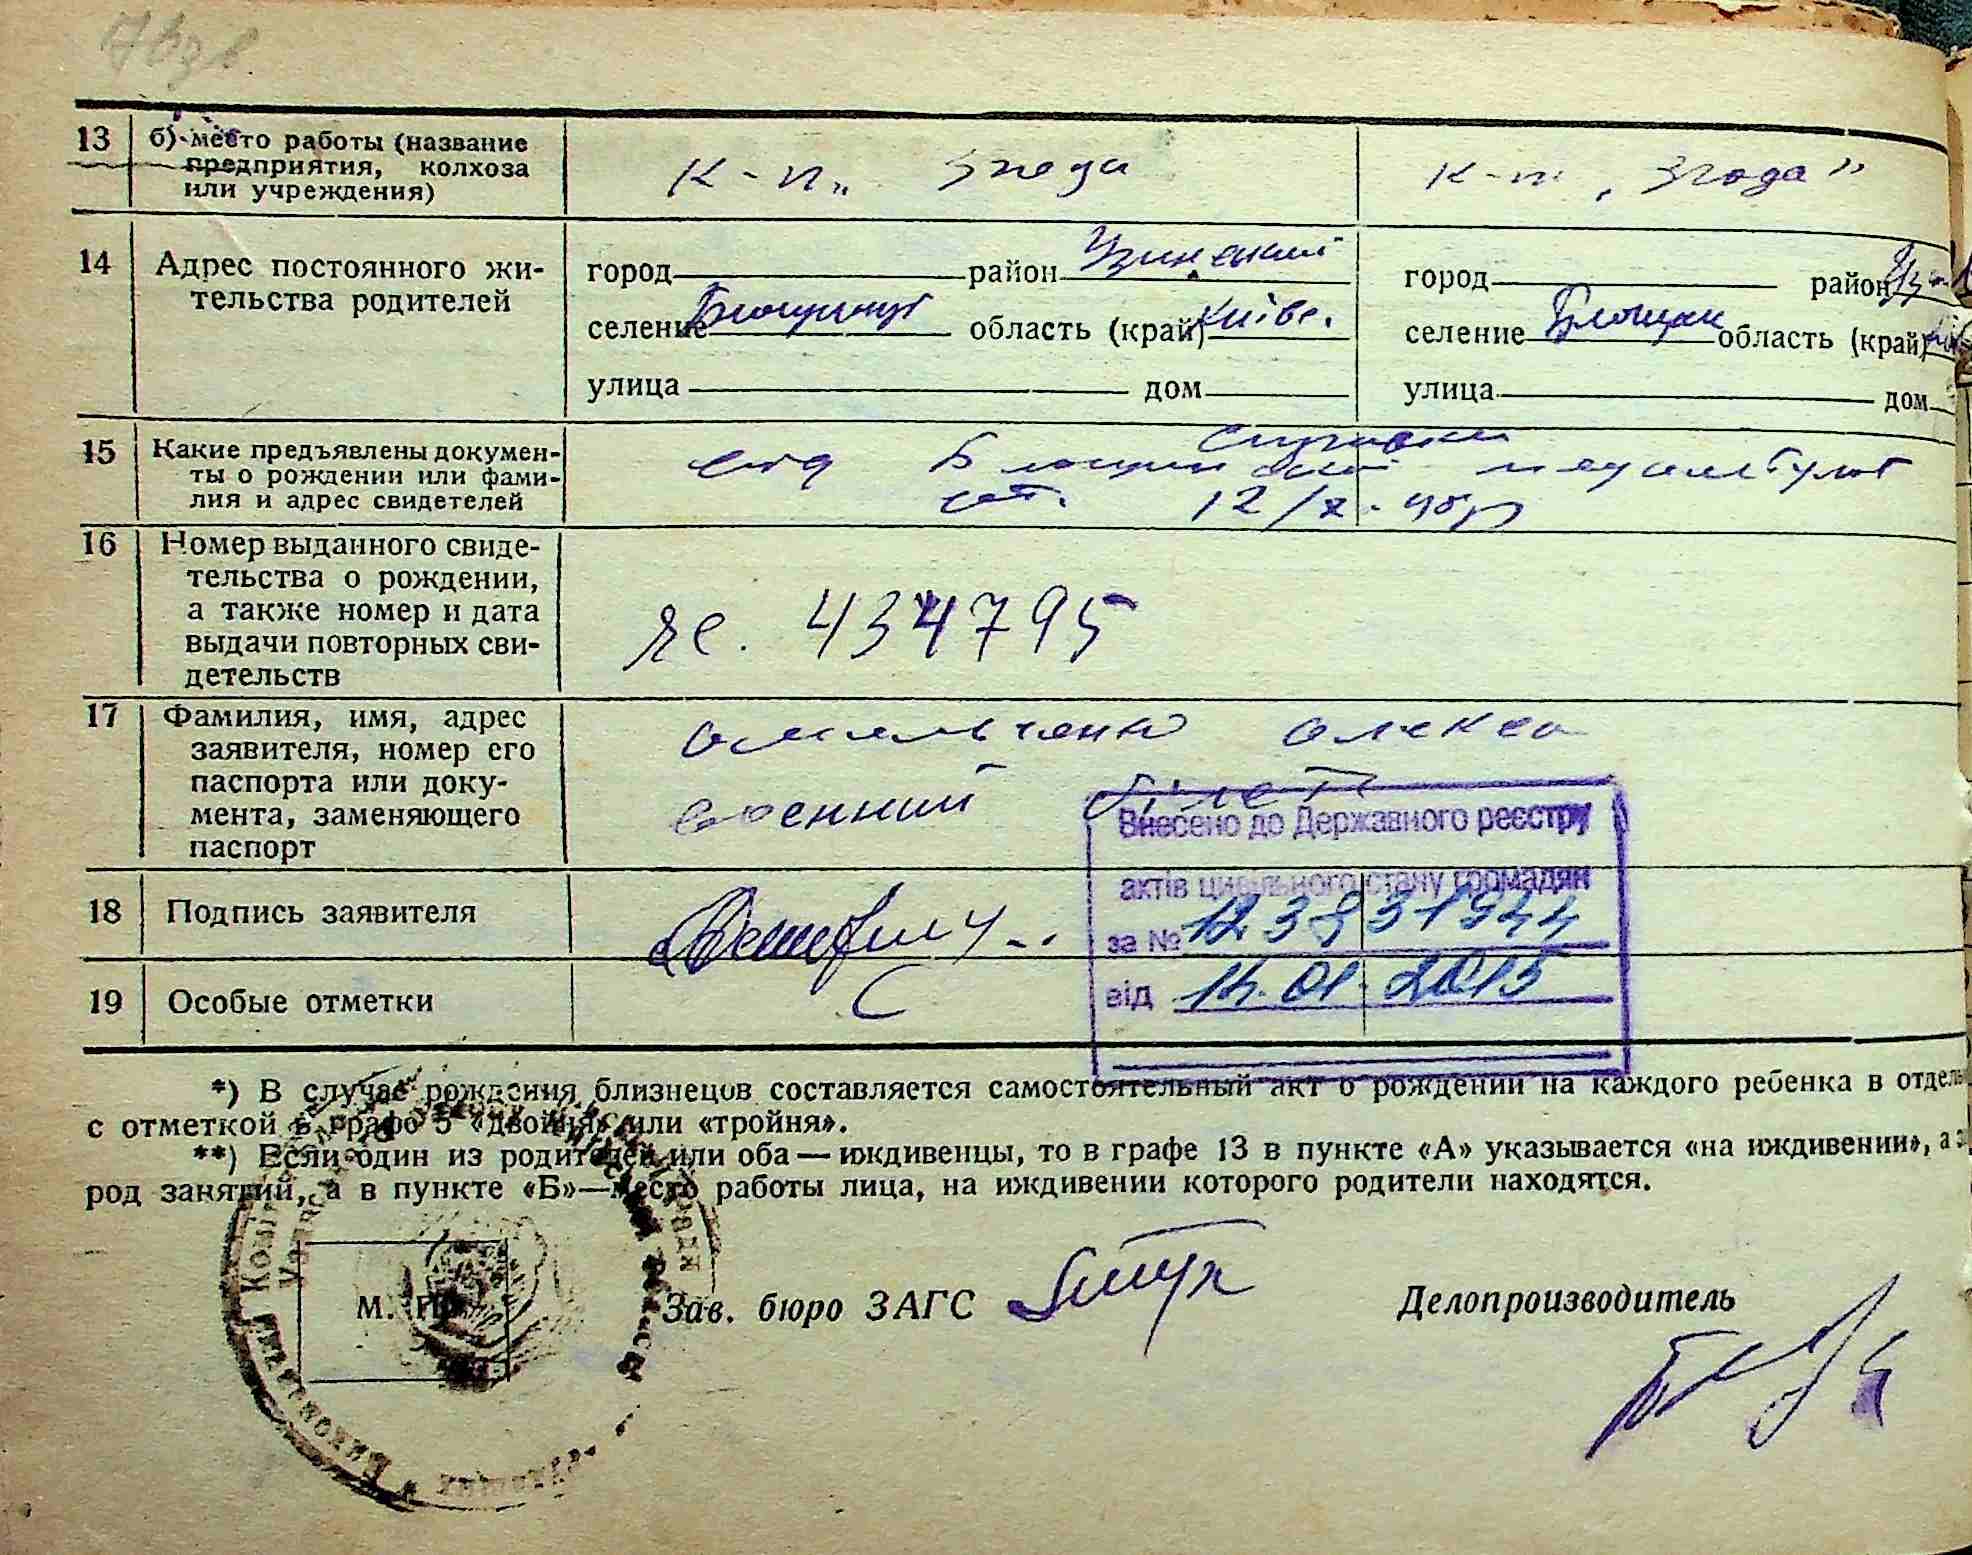 13 б) место работы (название
предприятия, колхоза
или учреждения)
к-п „ Згода
к-п „ Згода”
14 Адрес постоянного жи-
тельства родителей
город район Узинский
селение область (край) Київс.
улица дом
город район
селение область (край)
улица дом
15 Какие предъявлены докумен-
ты о рождении или фами-
лия и адрес свидетелей
16 Номер выданного свиде-
тельства о рождении,
а также номер и дата
выдачи повторных сви-
детельств
яс. 434795
17 Фамилия, имя, адрес
заявителя, номер его
паспорта или доку-
мента, заменяющего
паспорт
Омельченко Олекса
военний білет
Внесено до Державного реєстру
актів цивільного стану громадян
за № 12381944
від 14.01.2015
18 Подпись заявителя
19 Особые отметки
*) В случае рождения близнецов составляется самостоятельный акт о рождении на каждого ребенка в отдель
с отметкой в графе 5 «двойня» или «тройня».
**) Если один из родителей или оба — иждивенцы, то в графе 13 в пункте «А» указывается «на иждивении», а
род занятий, а в пункте «Б»—место работы лица, на иждивении которого родители находятся.
М. П.
Зав. бюро ЗАГС
Делопроизводитель